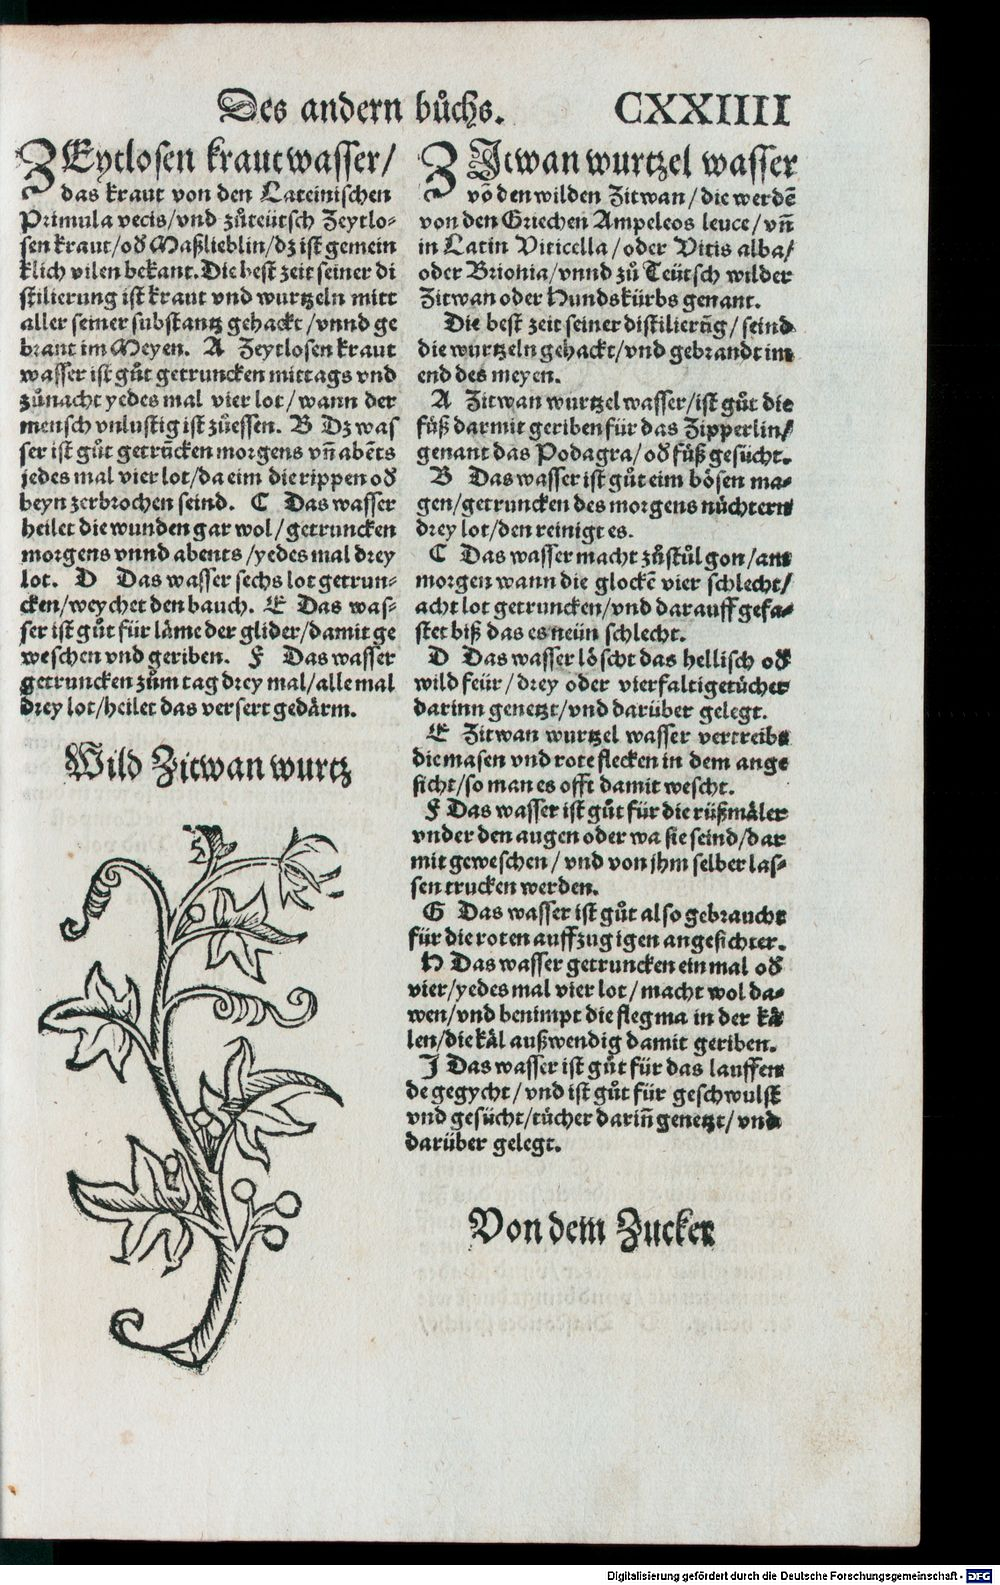 Des andern bůchs. CXXIIII
ZEytlosen kraut wasser/
das kraut von den Lateinischen
Primula vecis/vnd zůteütsch Zeytlo-
sen kraut/od̄ Maßlieblin/dz ist gemein
klich vilen bekant. Die best zeit seiner di
stilierung ist kraut vnd wurtzeln mitt
aller seiner substantz gehackt/vnnd ge
brant im Meyen. A Zeytlosen kraut
wasser ist gůt getruncken mittags vnd
zůnacht yedes mal vier lot/wann der
mensch vnlustig ist zůessen. B Dz was
ser ist gůt getrūcken morgens vn̄ abēts
jedes mal vier lot/da eim die rippen od̄
beyn zerbrochen seind. C Das wasser
heilet die wunden gar wol/getruncken
morgens vnnd abents/yedes mal drey
lot. D Das wasser sechs lot getrun-
cken/weychet den bauch. E Das was-
ser ist gůt für läme der glider/damit ge
weschen vnd geriben. F Das wasser
getruncken zům tag drey mal/alle mal
drey lot/heilet das versert gedärm.
Wild Zitwan wurtz
ZItwan wurtzel wasser
vō den wilden Zitwan/die werdē
von den Griechen Ampeleos leuce/vn̄
in Latin Viticella/oder Vitis alba/
oder Brionia/vnnd zů Teütsch wilder
Zitwan oder Hundskürbs genant.
Die best zeit seiner distilierūg/seind
die wurtzeln gehackt/vnd gebrandt im
end des meyen.
A Zitwan wurtzel wasser/ist gůt die
füß darmit geriben für das Zipperlin/
genant das Podagra/od̄ füß gesücht.
B Das wasser ist gůt eim bösen ma-
gen/getruncken des morgens nüchtern
drey lot/den reinigt es.
C Das wasser macht zůstůl gon/am
morgen wann die glockē vier schlecht/
acht lot getruncken/vnd darauff gefa-
stet biß das es neün schlecht.
D Das wasser löscht das hellisch od̄
wild feür/drey oder vierfaltige tücher
darinn genetzt/vnd darüber gelegt.
E Zitwan wurtzel wasser vertreibt
die masen vnd rote flecken in dem ange
sicht/so man es offt damit wescht.
F Das wasser ist gůt für die rüßmäler
vnder den augen oder wa sie seind/dar
mit geweschen/vnd von jhm selber las-
sen trucken werden.
G Das wasser ist gůt also gebraucht
für die roten auffzugigen angesichter.
H Das wasser getruncken ein mal od̄
vier/yedes mal vier lot/macht wol da-
wen/vnd benimpt die flegma in der kä
len/die käl außwendig damit geriben.
J Das wasser ist gůt für das lauffen
de gegycht/vnd ist gůt für geschwulst
vnd gesücht/tücher darin̄ genetzt/vnd
darüber gelegt.
Von dem Zucker
Digitalisierung gefördert durch die Deutsche Forschungsgemeinschaft - DFG